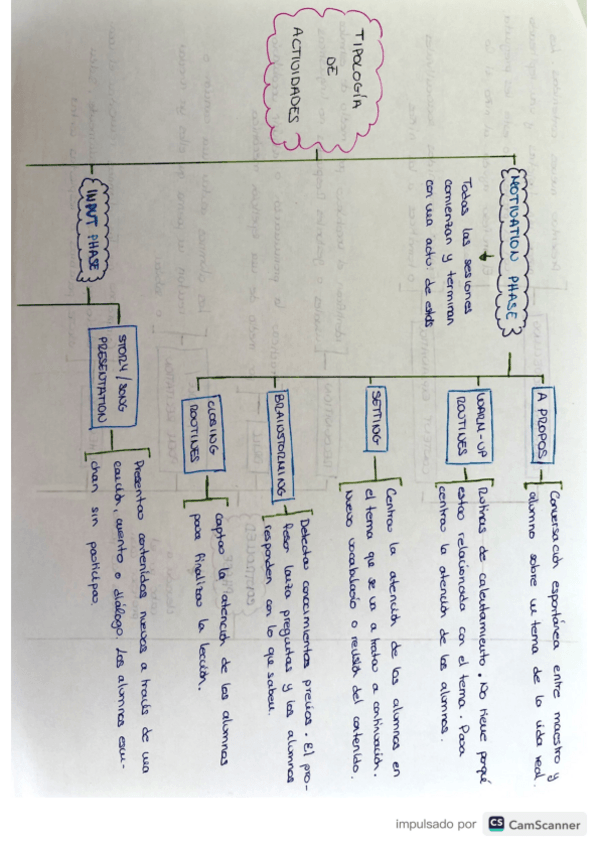 TIPOLOGÍA
DE
ACTIVIDADES
MOTIVATION PHASE
Todas las sesiones
comienzan y terminan
con una activ de estas
A PROPOS
Conversación espontánea entre maestro y
alumno sobre un tema de la vida real.
WARM-UP
ROUTINES
Rutinas de calentamiento. No tiene porqué
estar relacionada con el tema. Para
centrar la atención de los alumnos.
SETTING
Centrar la atención de los alumnos en
el tema que se va a tratar a continuación.
Nuevo vocabulario o revisión del contenido.
BRAINSTORMING
Detectar conocimientos previos. El pro-
fesor lanza preguntas y los alumnos
responden con lo que saben.
CLOSING
ROUTINES
Captar la atención de los alumnos
para finalizar la lección.
INPUT PHASE
STORY/SONG
PRESENTATION
Presentar contenidos nuevos a través de una
canción, cuento o diálogo. Los alumnos escu-
chan sin participar.
impulsado por CS CamScanner